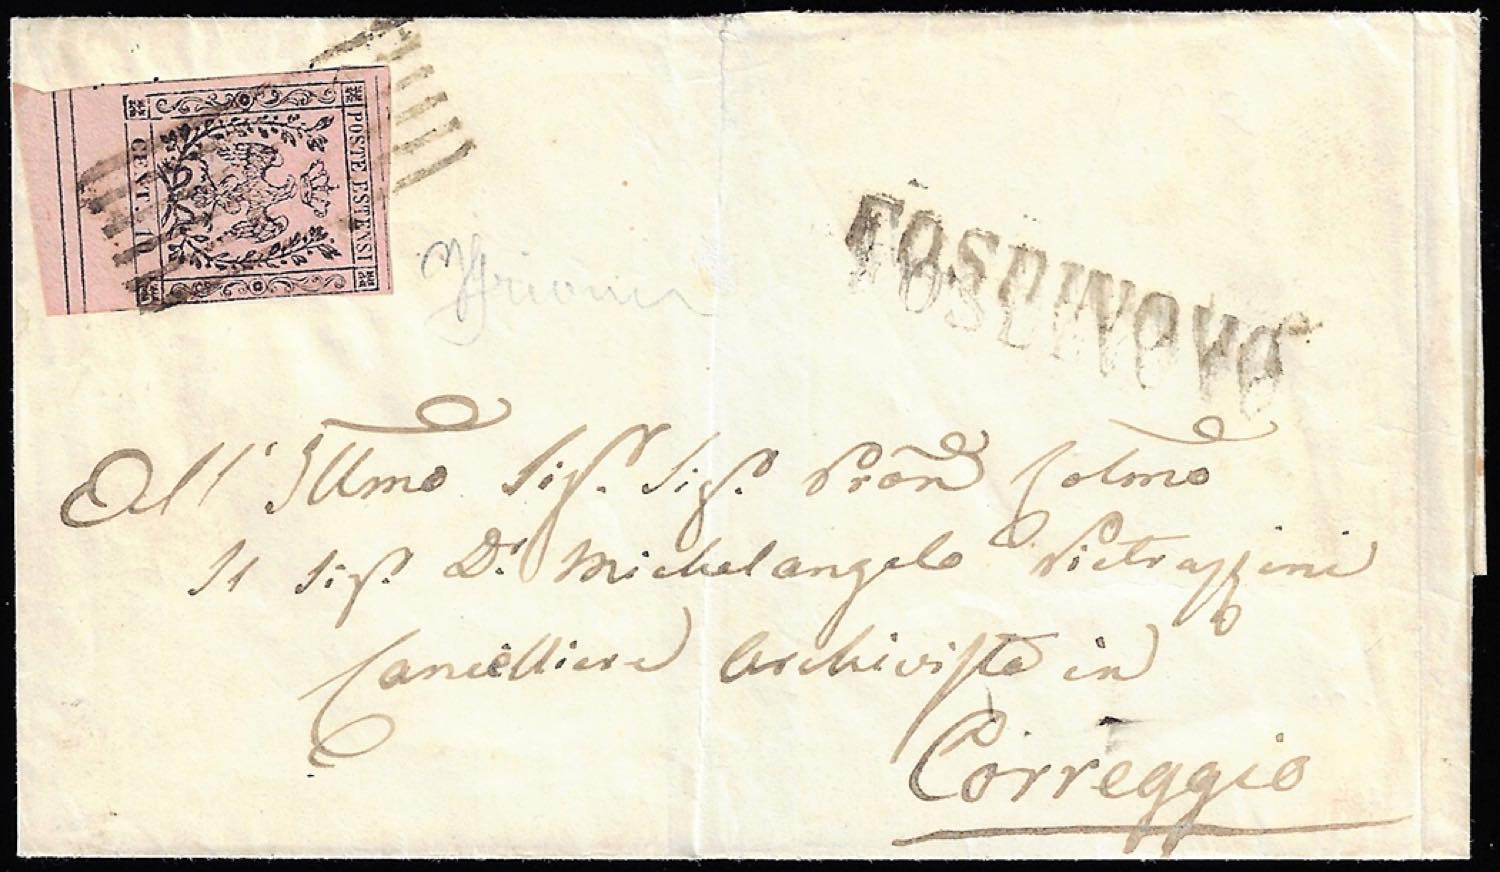 POSTE ESTENSI
CENT. 10
FOSDINOVO
All' Illmo Sig.r Sig.r Pron Colmo
Il Sig.r Dr. Michelangelo
Cancelliere Archivista in
Correggio